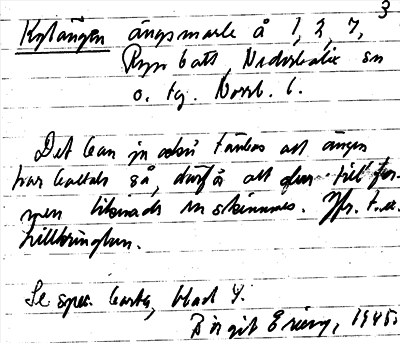 3
Kylängen ängsmark å 1, 2, 7,
Ryss batt, Nederkalix sn
o. tg. Norrb. l.
Det kan ju också tänkas att ängen
har kallats så, därför att den till for-
men liknade en skinnes. Jfr. t.ex.
Se spec. karta, blad 4.
Birgit Ering, 1945.